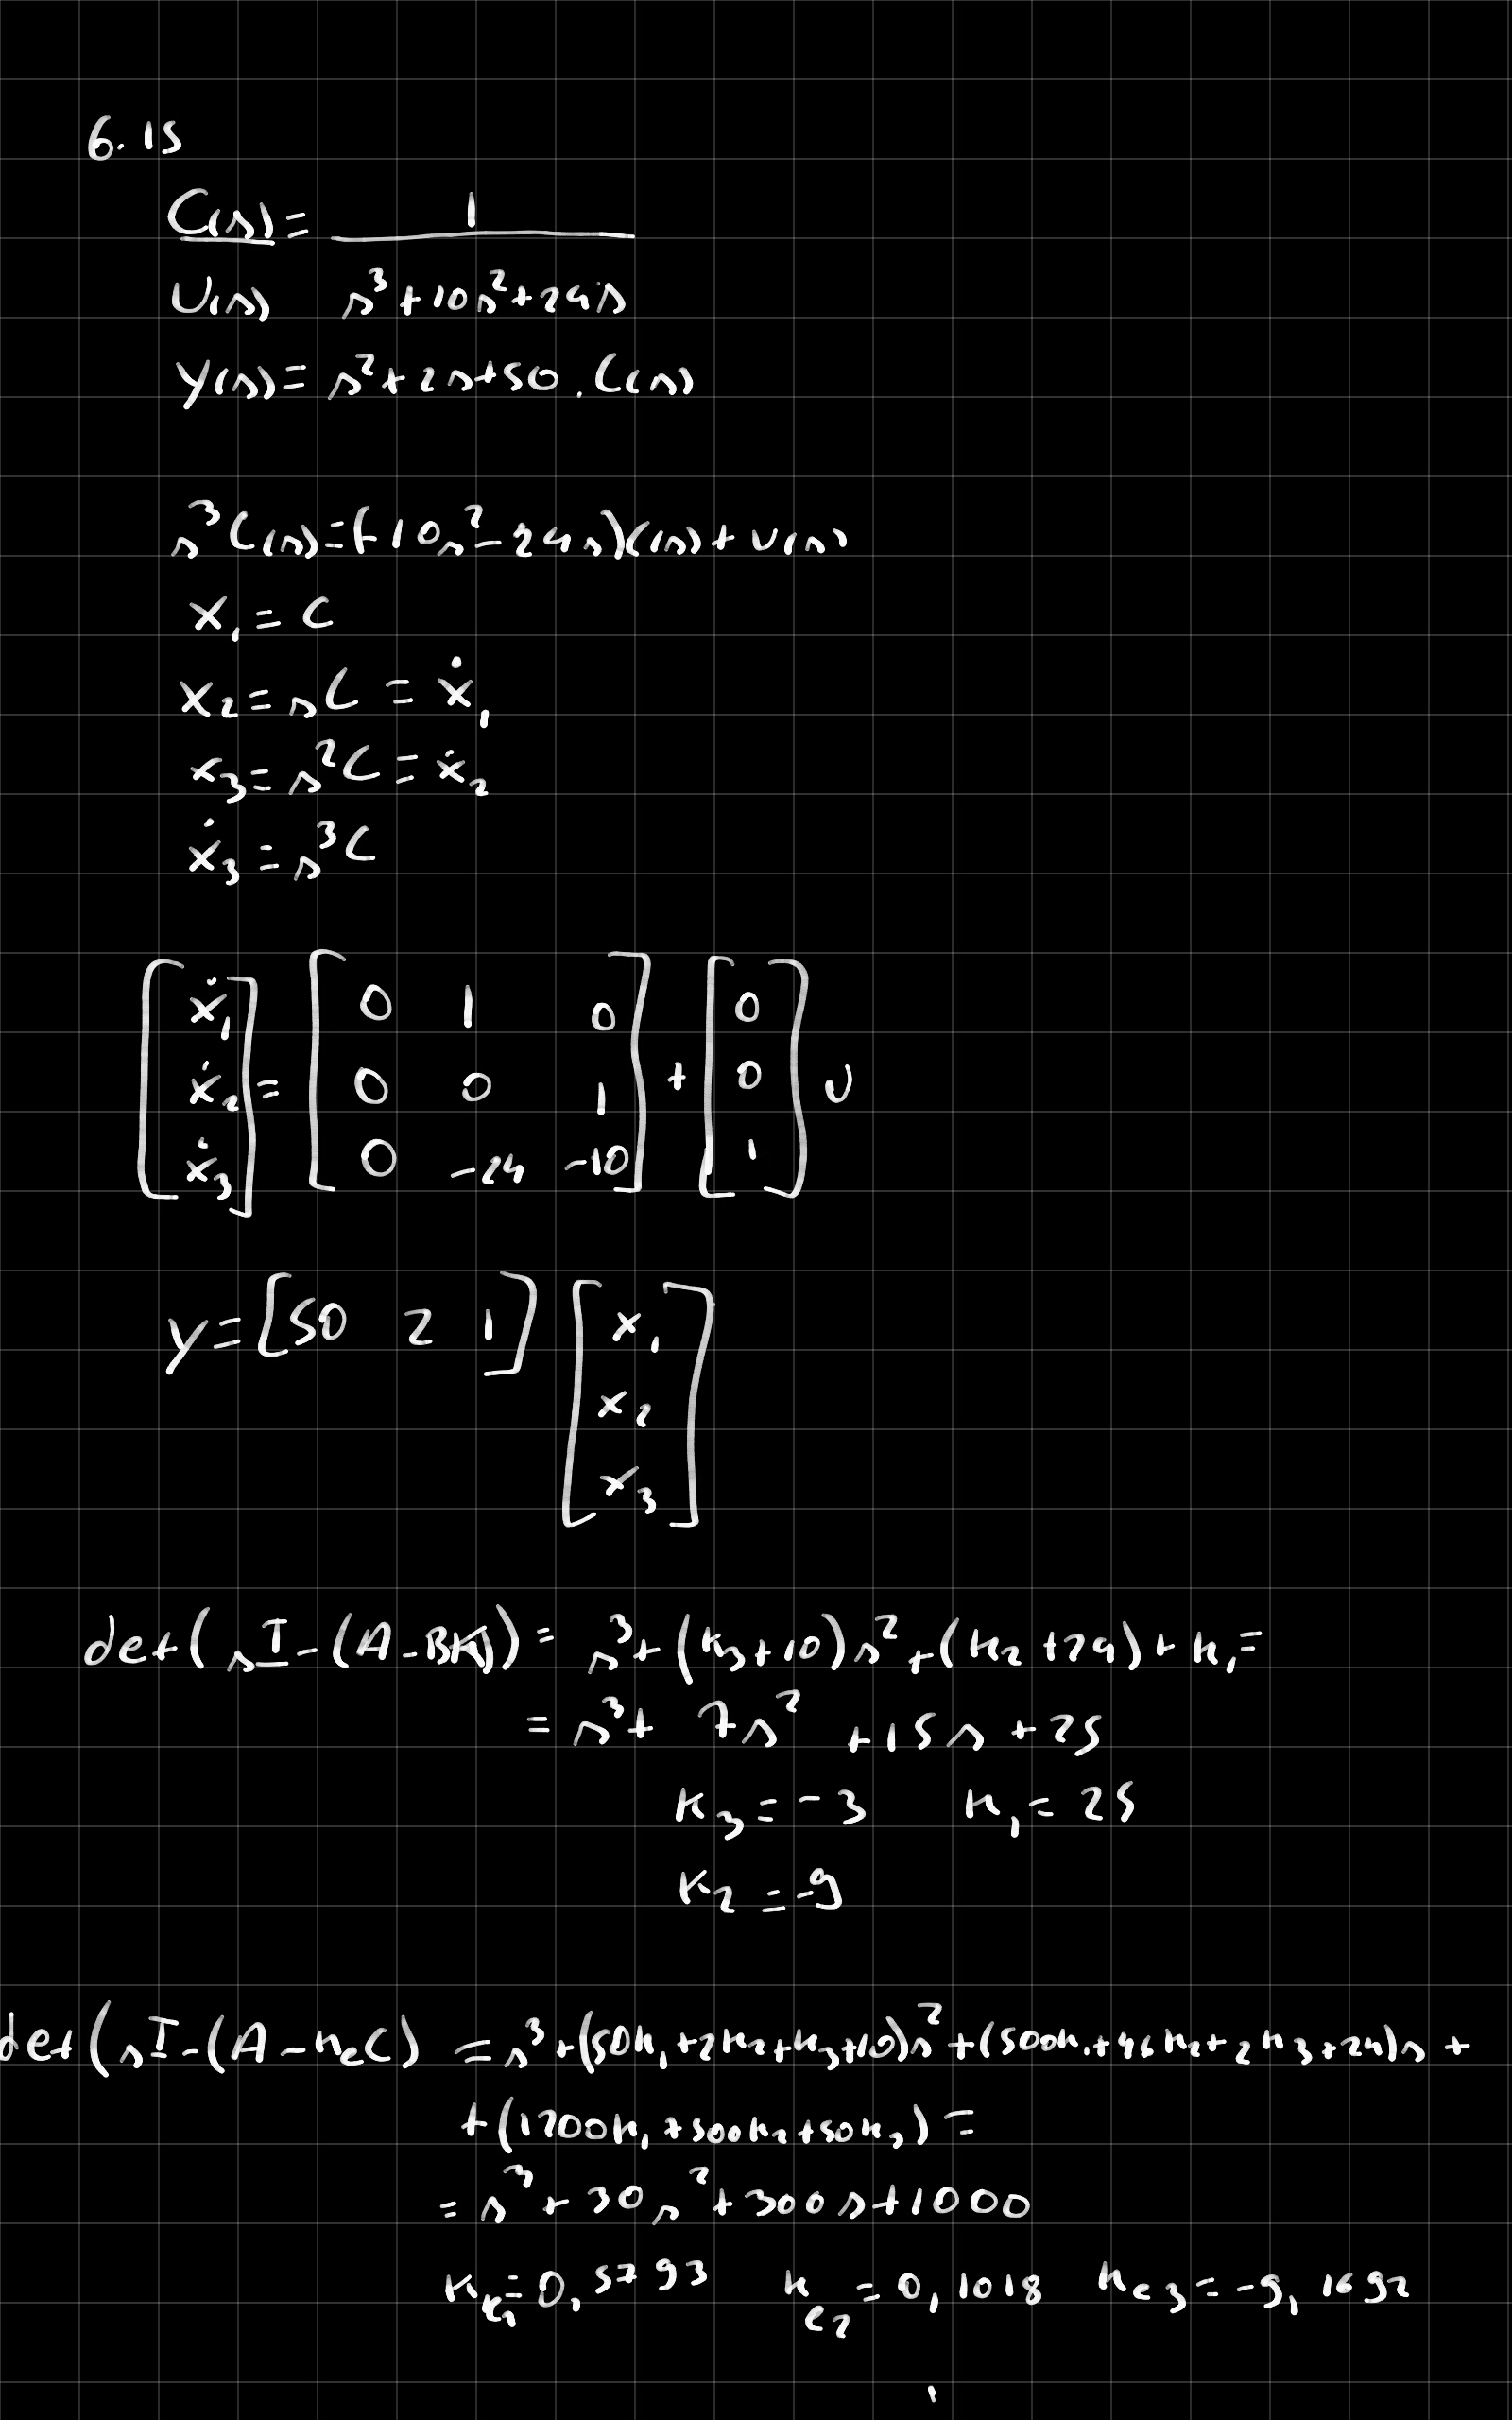 6.15
C(s) = 1
U(s) s³+10s²+24s
Y(s) = s²+2s+50 . C(s)
s³C(s)=(-10s²-24s)C(s)+U(s)
x₁ = C
x₂ = sC = ẋ₁
x₃ = s²C = ẋ₂
ẋ₃ = s³C
ẋ₁ 0 1 0 0
ẋ₂ = 0 0 1 + 0 U
ẋ₃ 0 -24 -10 1
y = [50 2 1] x₁
x₂
x₃
det(sI-(A-BK)) = s³+(k₃+10)s²+(k₂+24)+k₁=
= s³+ 7s² +15s +25
k₃ = -3 k₁ = 25
k₂ = -9
det(sI-(A-keC) = s³+(50k₁+2k₂+k₃+10)s²+(500k₁+46k₂+2k₃+24)s +
+(1200k₁+500k₂+50k₃) =
= s³+30s²+300s+1000
ke₁=0,5793 ke₂=0,1018 ke₃=-9,1692